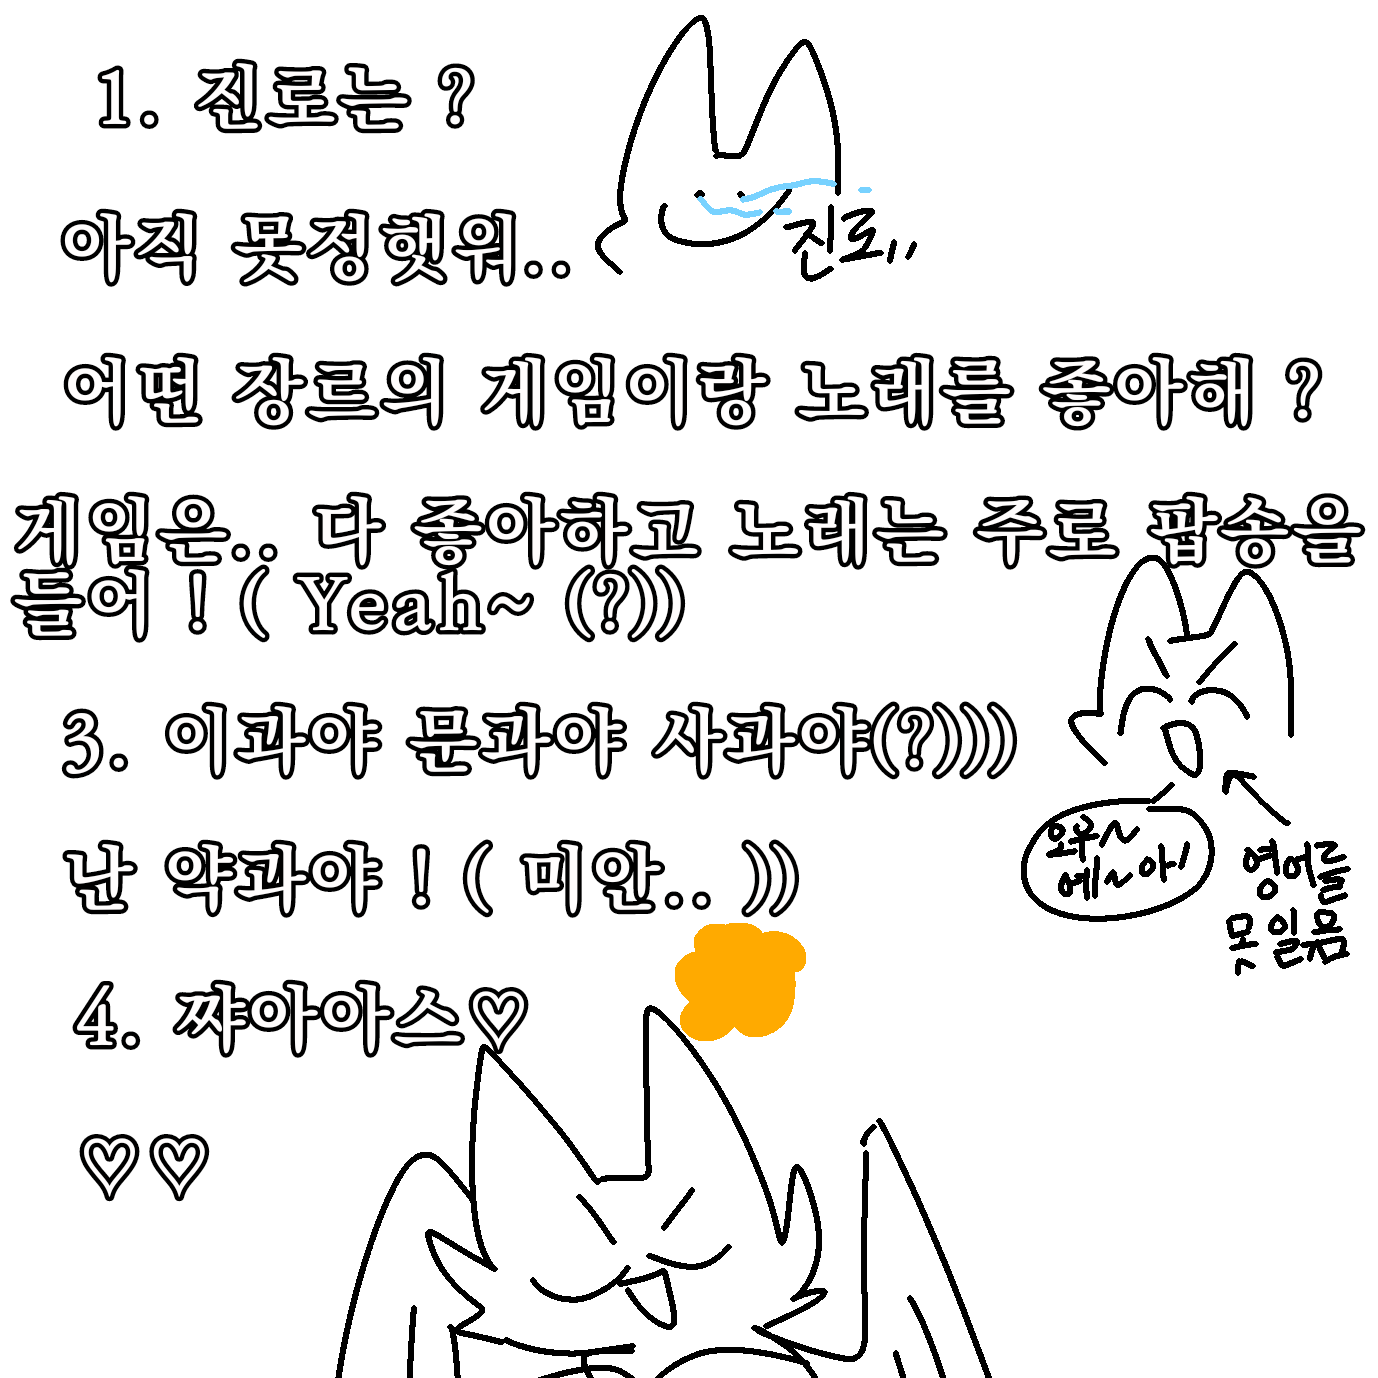 1. 진로는 ?
아직 못정햇워..
진로,,
어떤 장르의 게임이랑 노래를 좋아해 ?
게임은.. 다 좋아하고 노래는 주로 팝송을
들어 ! ( Yeah~ (?))
3. 이과야 문과야 사과야(?))))
난 약과야 ! ( 미안.. ))
오우~
예~아!
영어를
못일믐
4. 쨔아아스♡
♡♡